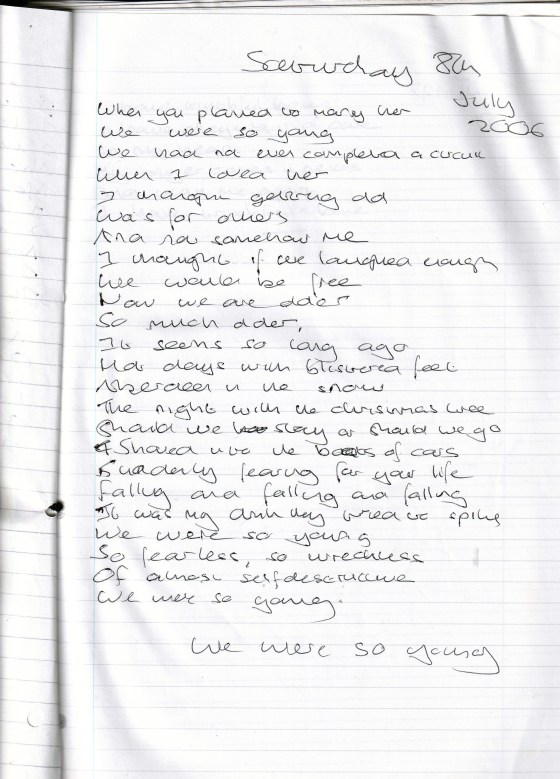 Saturday 8th
July
2006
When you planned to marry her
We were so young
We had not even completed a circuit
When I loved her
I thought getting old
Was for others
And not somehow me
I thought if we laughed enough
We would be free
Now we are older
So much older,
It seems so long ago
Hot days with blistered feet
Aberdeen in the snow
The night with the christmas tree
Should we stay or should we go
Shoved into the boots of cars
Suddenly fearing for your life
Falling and falling and falling
It was my drink they tried to spike
We were so young
So fearless, so wreckless
Of almost selfdestructive
We were so young.
We were so young